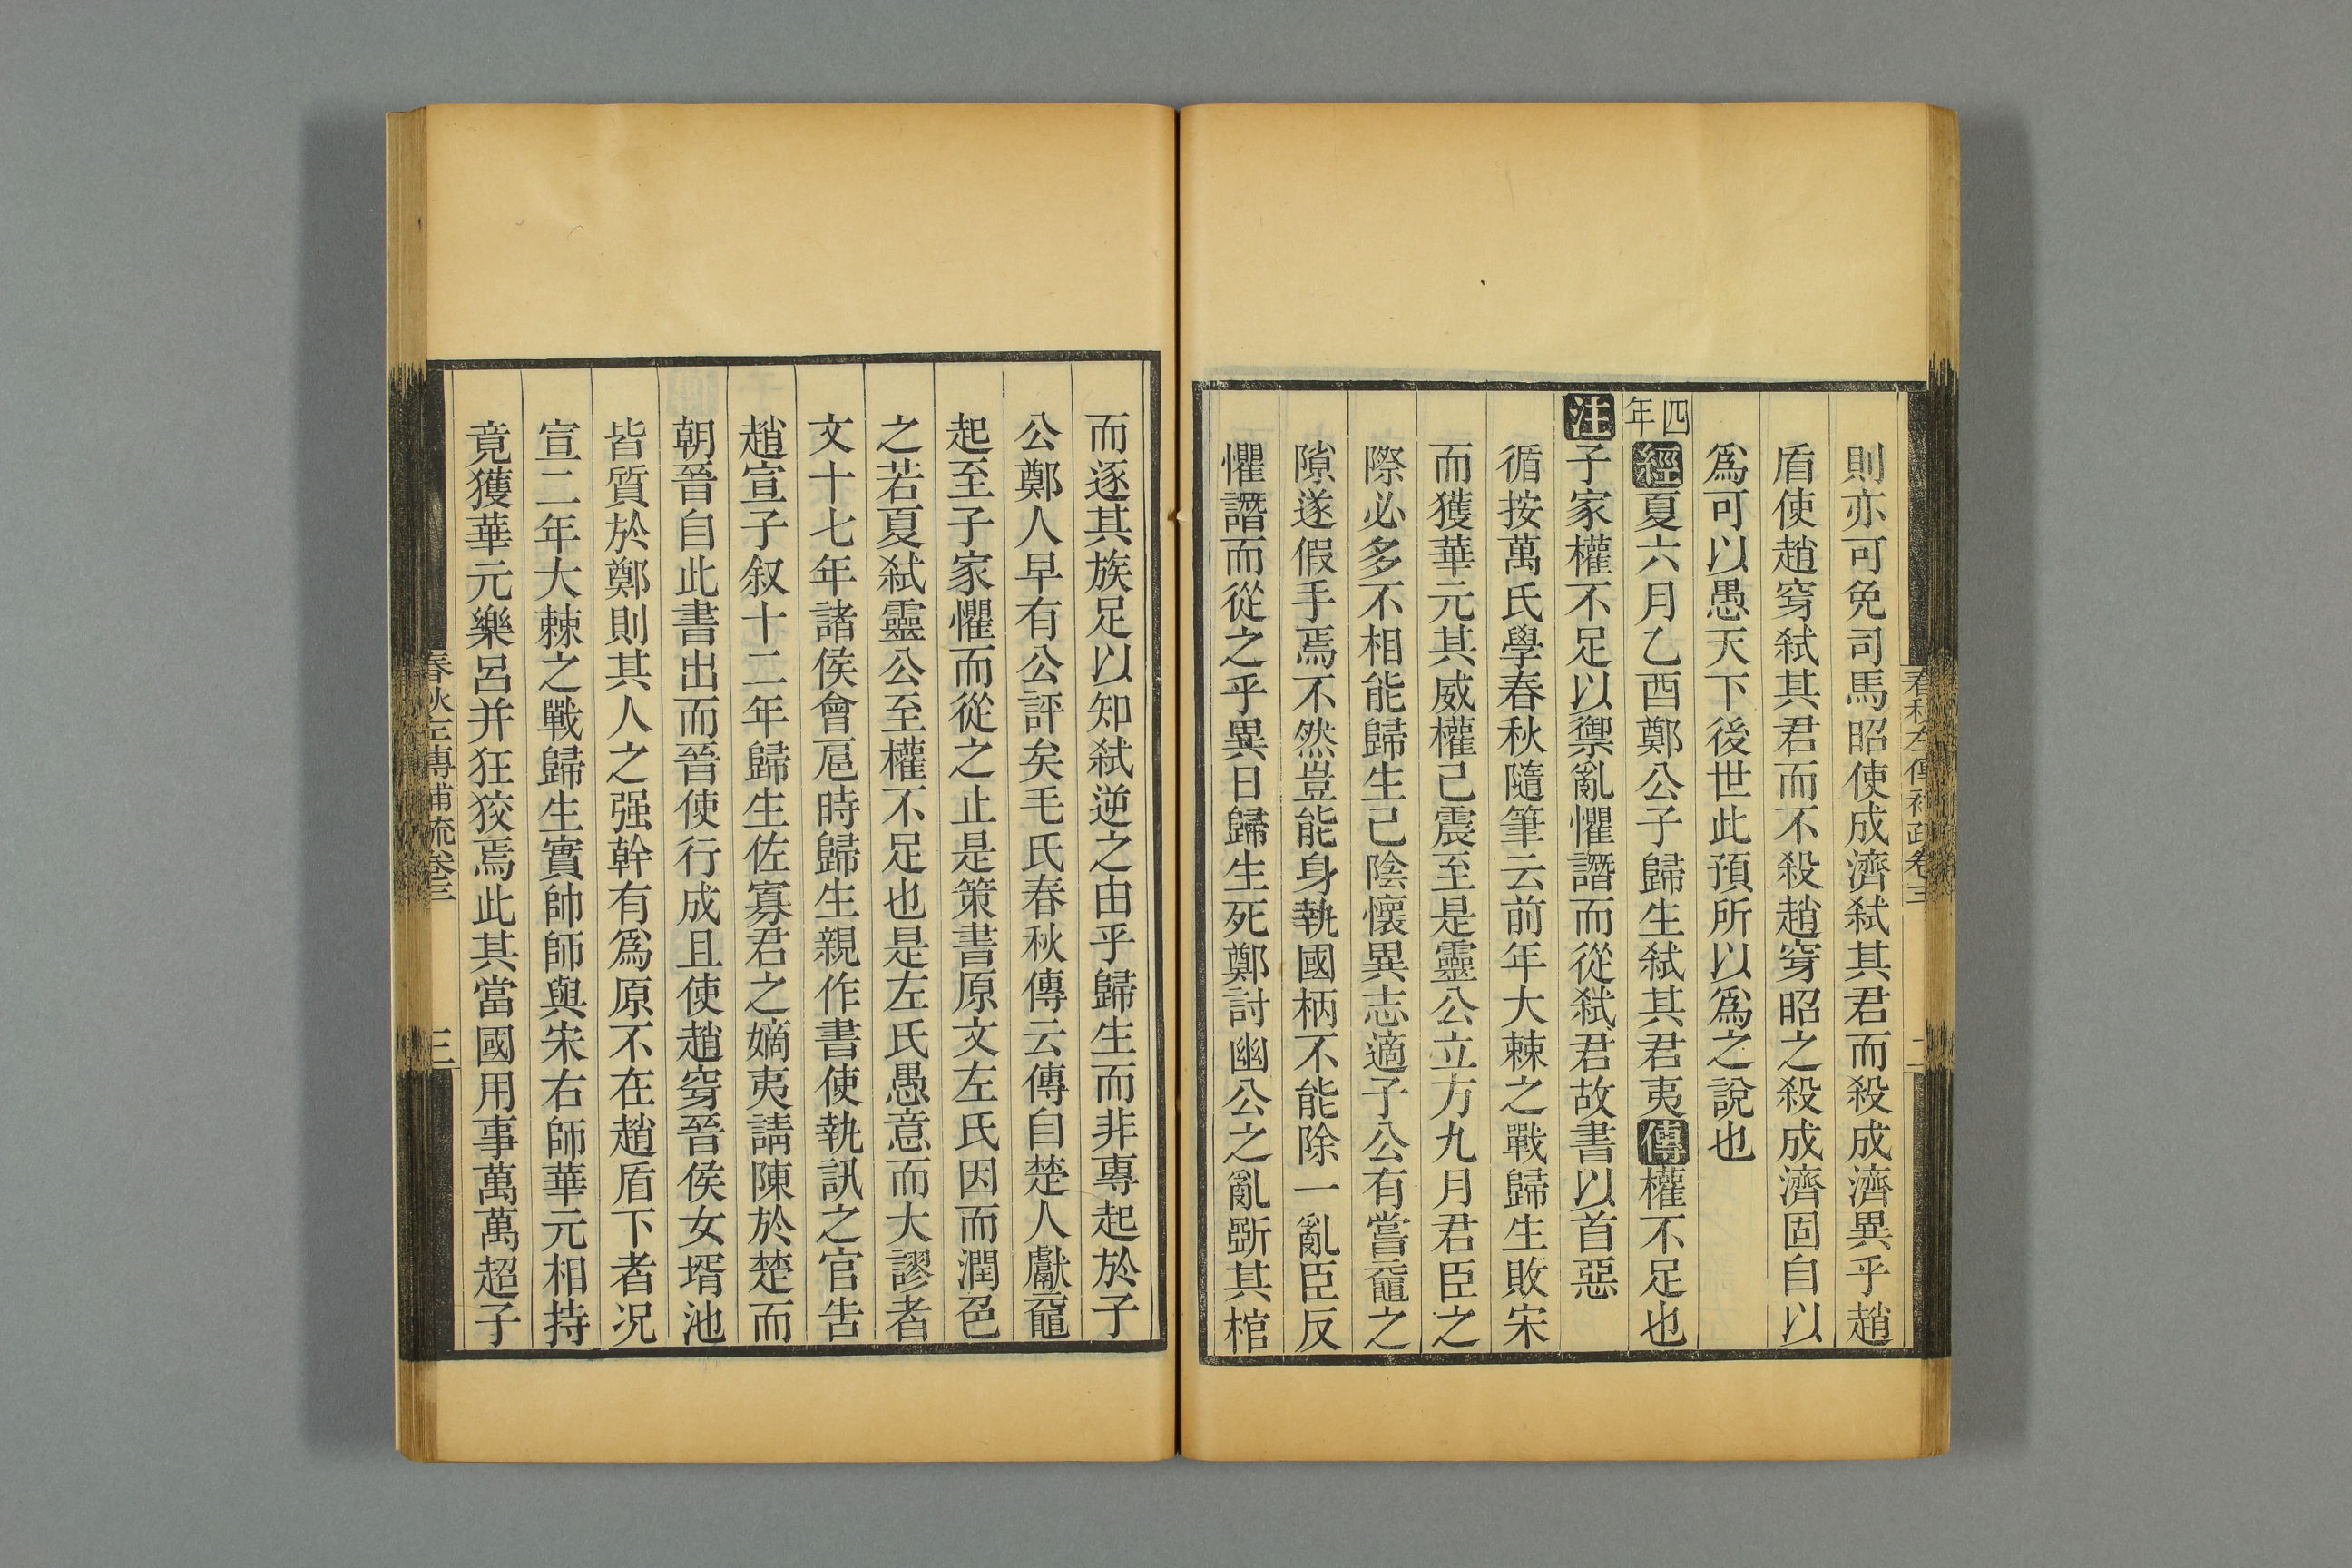 則亦可免司馬昭使成濟弑其君而殺成濟異乎趙
盾使趙穿弑其君而不殺趙穿昭之殺成濟固自以
爲可以愚天下後世此預所以爲之說也
四年經夏六月乙酉鄭公子歸生弑其君夷傳權不足也
注子家權不足以禦亂懼譖而從弑君故書以首惡
循按萬氏學春秋隨筆云前年大棘之戰歸生敗宋
而獲華元其威權已震至是靈公立方九月君臣之
際必多不相能歸生已陰懷異志適子公有嘗黿之
隙遂假手焉不然豈能身執國柄不能除一亂臣反
懼譖而從之乎異日歸生死鄭討幽公之亂斲其棺
春秋左傳補疏卷三
二
而逐其族足以知弑逆之由乎歸生而非專起於子
公鄭人早有公評矣毛氏春秋傳云傳自楚人獻黿
起至子家懼而從之止是策書原文左氏因而潤色
之若夏弑靈公至權不足也是左氏愚意而大謬者
文十七年諸侯會扈時歸生親作書使執訊之官告
趙宣子叙十二年歸生佐寡君之嫡夷請陳於楚而
朝晉自此書出而晉使行成且使趙穿晉侯女壻池
皆質於鄭則其人之强幹有爲原不在趙盾下者况
宣二年大棘之戰歸生實帥師與宋右師華元相持
竟獲華元樂呂并狂狡焉此其當國用事萬萬超子
春秋左傳補疏卷三
三